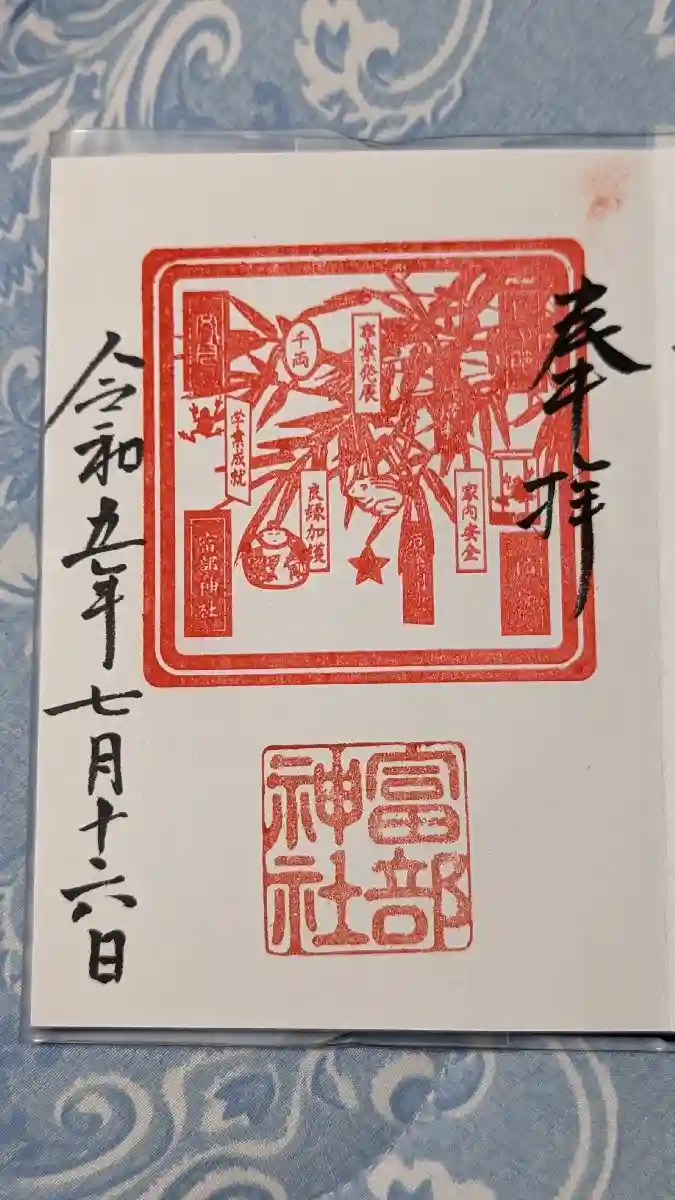 奉拝
事業発展
千両
家内安全
良縁加護
学業成就
富部神社
富部
神社
令和五年七月十六日